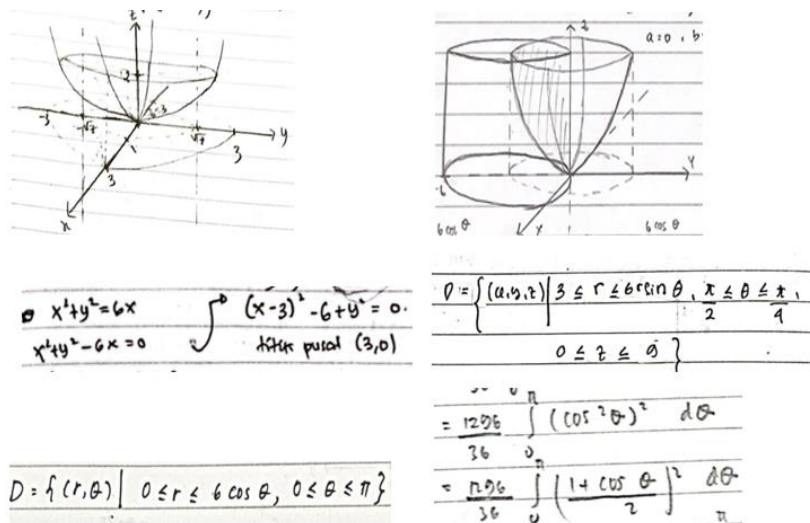 z
2
-3
-3
-√7
√7
3
y
1
3
x
z
a=0 , b
-6
y
x
6 cos θ
6 cos θ
x²+y²=6x
x²+y²-6x=0
(x-3)²-6+y²=0.
titik pusat (3,0)
D={(x,y,z)| 3 ≤ r ≤ 6rsin θ, π/2 ≤ θ ≤ π/4,
0 ≤ z ≤ 9}
D={(r,θ)| 0≤r≤ 6 cos θ, 0≤θ≤π}
= 1296/36 ∫₀^π (cos²θ)² dθ
= 1296/36 ∫₀^π ((1+cos θ)/2)² dθ
π